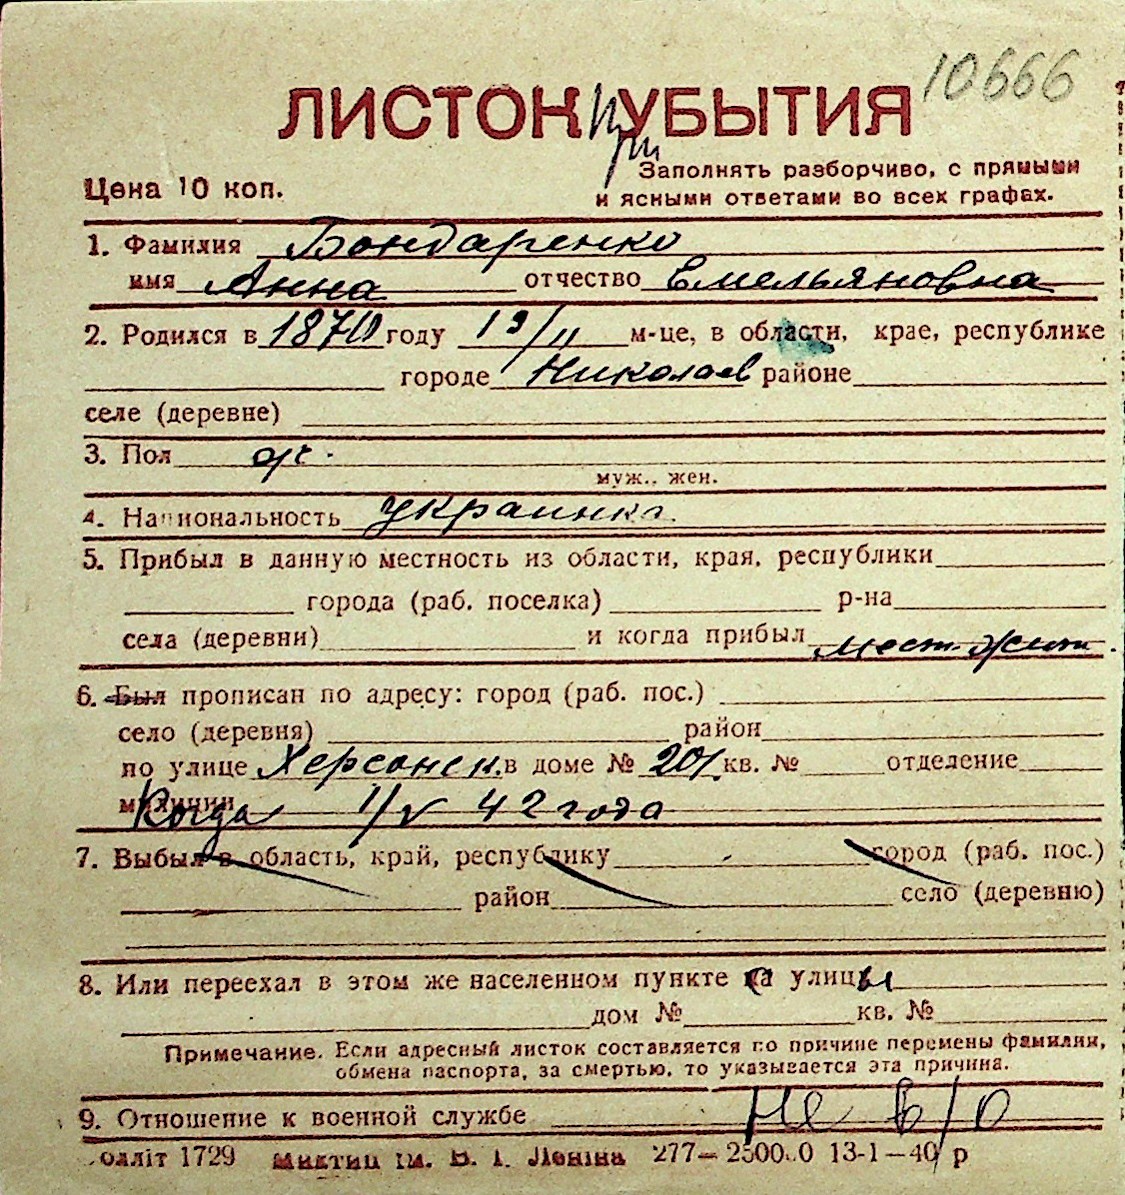 10666
ЛИСТОК При УБЫТИЯ
Цена 10 коп.
Заполнять разборчиво, с прямыми
и ясными ответами во всех графах.
1. Фамилия Бондаренко
имя Анна отчество Емельяновна
2. Родился в году 19/II м-це, в области, крае, республике
городе Николаев районе
селе (деревне)
3. Пол ж.
муж.. жен.
4. Национальность украинка
5. Прибыл в данную местность из области, края, республики
города (раб. поселка) р-на
села (деревни) и когда прибыл мест. жит.
6. Был прописан по адресу: город (раб. пос.)
село (деревня) район
по улице Херсонск. в доме № 201 кв. № отделение
милиции Когда 1/V 42 года
7. Выбыл в область, край, республику город (раб. пос.)
район село (деревню)
8. Или переехал в этом же населенном пункте са улицы
дом № кв. №
Примечание. Если адресный листок составляется по причине перемены фамилии,
обмена паспорта, за смертью, то указывается эта причина.
9. Отношение к военной службе Не в/о
олліт 1729 ім. В. І. Леніна 277— 13-1—40 р